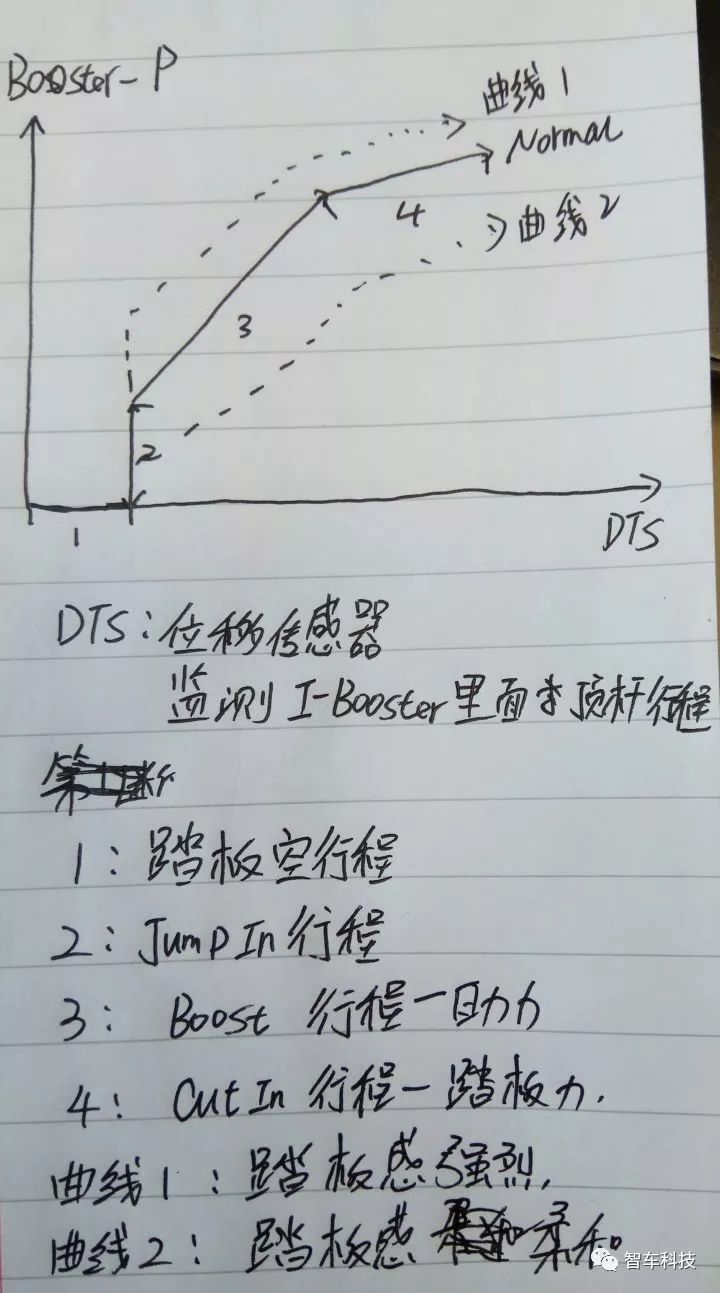 Booster-P
曲线1
Normal
4
曲线2
3
2
1
DTS
DTS：位移传感器
监测 I-Booster里面 顶杆行程
1：踏板空行程
2：Jump In 行程
3： Boost 行程一助力
4： Cut In 行程一踏板力.
曲线1：踏板感强烈.
曲线2：踏板感 柔和
智车科技